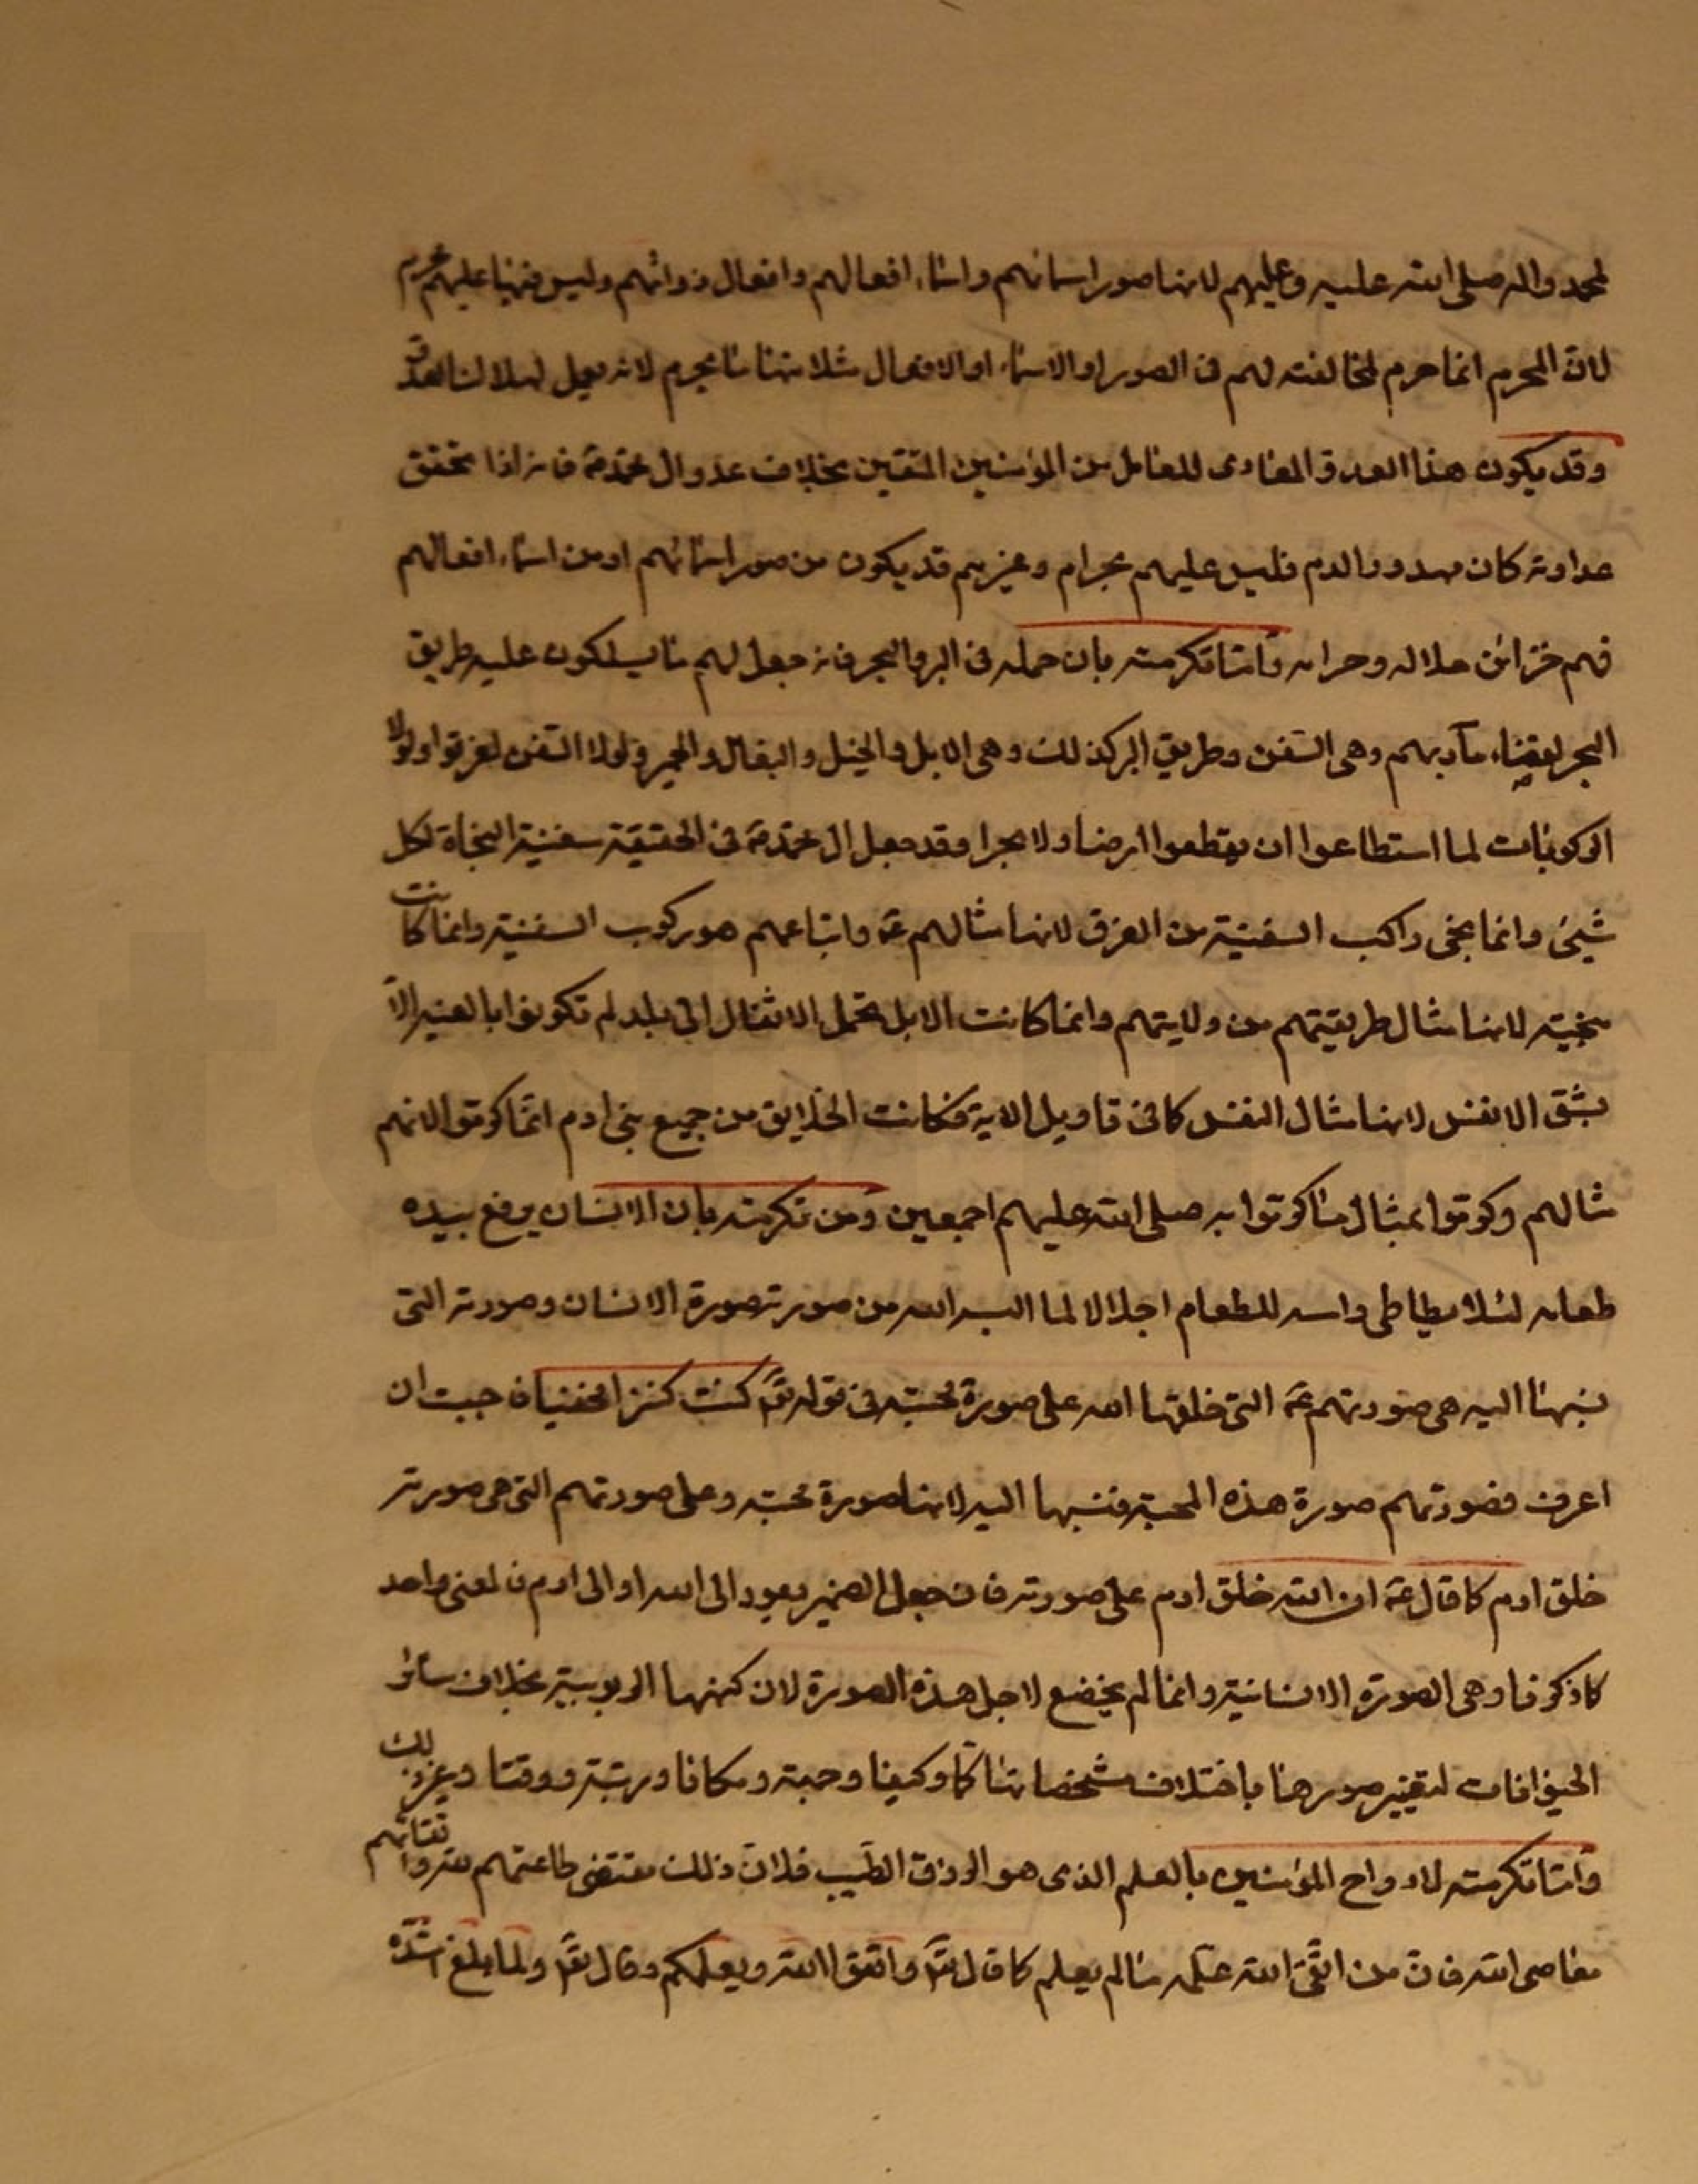 لمحمد واله صلى الله عليه وعليهم لانها صور اسمائهم واسماء افعالهم وافعال ذواتهم وليس فيها عليهم محرم
لان المحرم انما حرم لمخالفته لهم فى الصور او الاسماء او الافعال مثلا منها ما يحرم لانه يعمل لهلاك العدو
وقد يكون هذا العدو المعادى للعامل من المؤمنين المتقين بخلاف عدو ال محمد ع فانه اذا تحقق
عداوته كان مهدور الدم فليس عليهم بحرام وغيرهم قد يكون من صور اسمائهم او من اسماء افعالهم
فهم خزائن حلاله وحرامه وأما تكرمته بان حمله فى البر والبحر فانه جعل لهم ما يسلكون عليه طريق
البحر لقضاء مآربهم وهى السفن وطريق البر كذلك وهى الابل والخيل والبغال والحمير ولولا السفن لغرقوا ولولا
الركوبات لما استطاعوا ان يقطعوا ارضا ولا بحرا وقد جعل ال محمد ع فى الحقيقة سفينة النجاة لكل
شيئ وانما ينجى راكب السفينة من الغرق لانها مثالهم ع واتباعهم هو ركوب السفينة وانما كانت
منجيته لانها مثال طريقتهم من ولايتهم وانما كانت الابل تحمل الاثقال الى بلد لم تكونوا بالغيه الا
بشق الانفس لانها مثال النفس كما فى تاويل الاية فكانت الخلايق من جميع بنى ادم انما كرموا لانهم
مثالهم وكرموا بمثال ما كرموا به صلى الله عليهم اجمعين ومن تكرمته بان الانسان يرفع بيده
طعامه لئلا يطاطى راسه للطعام اجلالا لما البسه الله من صورته صورة الانسان وصورته التى
نسبها اليه هى صورتهم ع التى خلقها الله على صورة محبته فى قوله تع كنت كنزا مخفيا فاحببت ان
اعرف فصورتهم صورة هذه المحبة فنسبها اليه لانها صورة محبته وعلى صورتهم التى هى صورته
خلق ادم كما قال ع ان الله خلق ادم على صورته فان جعل الضمير يعود الى الله او الى ادم فالمعنى واحد
كما ذكرنا وهى الصورة الانسانية وانما لم يخضع لاجل هذه الصورة لان كنهها الربوبية بخلاف سائر
الحيوانات لتغيير صورها باختلاف مشخصاتها كما وكيفا وجهة ومكانا ورتبة ووقتا وغير ذلك
وأما تكرمته لارواح المؤمنين بالعلم الذى هو الرزق الطيب فلان ذلك مقتضى طاعتهم لله واتقائهم
معاصى الله فان من اتقى الله علمه ما لم يعلم كما قال تع واتقوا الله ويعلمكم وقال تع ولما بلغ اشده